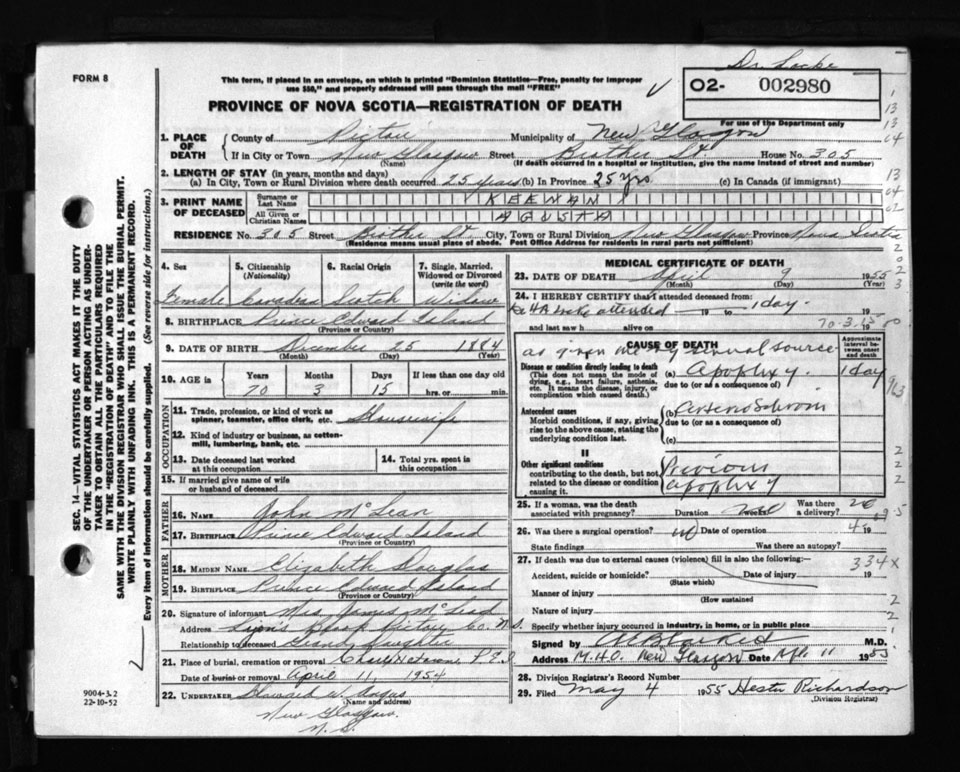 Dr. Locke
FORM 8
This form, if placed in an envelope, on which is printed "Dominion Statistics—Free, penalty for improper
use $50," and properly addressed will pass through the mail "FREE"
O2- 002980
For use of the Department only
PROVINCE OF NOVA SCOTIA—REGISTRATION OF DEATH
1. PLACE OF DEATH
County of Pictou Municipality of New Glasgow
If in City or Town New Glasgow Street Brother St. House No. 305
(Name) (If death occurred in a hospital or institution, give the name instead of street and number)
2. LENGTH OF STAY (in years, months and days)
(a) In City, Town or Rural Division where death occurred 25 years (b) In Province 25 yrs. (c) In Canada (if immigrant)
3. PRINT NAME OF DECEASED
Surname or Last Name KEEWAN
All Given or Christian Names AGUSTA
RESIDENCE No. 305 Street Brother St City, Town or Rural Division New Glasgow Province Nova Scotia
(Residence means usual place of abode. Post Office Address for residents in rural parts not sufficient)
4. Sex 5. Citizenship (Nationality) 6. Racial Origin 7. Single, Married, Widowed or Divorced (write the word)
Female Canadian Scotch Widow
8. BIRTHPLACE Prince Edward Island
(Province or Country)
9. DATE OF BIRTH December 25 1884
(Month) (Day) (Year)
10. AGE in Years Months Days If less than one day old
70 3 15 hrs. or min.
OCCUPATION
11. Trade, profession, or kind of work as spinner, teamster, office clerk, etc. Housewife
12. Kind of industry or business, as cotton-mill, lumbering, bank, etc.
13. Date deceased last worked at this occupation
14. Total yrs. spent in this occupation
15. If married give name of wife or husband of deceased
FATHER
16. NAME John McLean
17. BIRTHPLACE Prince Edward Island
(Province or Country)
MOTHER
18. MAIDEN NAME Elizabeth Douglas
19. BIRTHPLACE Prince Edward Island
(Province or Country)
20. Signature of informant Mrs. James McLeod
Address Lyon's Brook Pictou Co. N.S.
Relationship to deceased Grand Daughter
21. Place of burial, cremation or removal Charlottetown P.E.I
Date of burial or removal April 11, 1954
22. UNDERTAKER Howard W. Angus
(Name and address)
New Glasgow.
N.S.
MEDICAL CERTIFICATE OF DEATH
23. DATE OF DEATH April 9 1955
(Month) (Day) (Year)
24. I HEREBY CERTIFY that I attended deceased from:
attended 19 to 1 day. 19
and last saw h alive on 19
70-3-15
CAUSE OF DEATH
Approximate interval between onset and death
as given me by source
Disease or condition directly leading to death (a) Apoplexy. 1 day
(This does not mean the mode of dying, e.g., heart failure, asthenia, etc. It means the disease, injury, or complication which caused death.)
due to (or as a consequence of)
Antecedent causes (b)
Morbid conditions, if any, giving rise to the above cause, stating the underlying condition last.
due to (or as a consequence of)
(c)
II
Other significant conditions contributing to the death, but not related to the disease or condition causing it.
Previous
apoplexy
25. If a woman, was the death associated with pregnancy? Duration weeks Was there a delivery?
26. Was there a surgical operation? no Date of operation 19
State findings Was there an autopsy?
27. If death was due to external causes (violence) fill in also the following:—
334X
Accident, suicide or homicide? Date of injury 19
(State which)
Manner of injury
(How sustained
Nature of injury
Specify whether injury occurred in industry, in home, or in public place
Signed by M.D.
Address M.H.O. New Glasgow Date Apl. 11 1955
28. Division Registrar's Record Number
29. Filed May 4 1955 Hester Richardson
(Division Registrar)
SEC. 14—VITAL STATISTICS ACT MAKES IT THE DUTY
OF THE UNDERTAKER OR PERSON ACTING AS UNDER-
TAKER TO OBTAIN ALL THE PARTICULARS REQUIRED
IN THE "REGISTRATION OF DEATH" AND TO FILE THE
SAME WITH THE DIVISION REGISTRAR WHO SHALL ISSUE THE BURIAL PERMIT.
WRITE PLAINLY WITH UNFADING INK. THIS IS A PERMANENT RECORD.
Every item of information should be carefully supplied. (See reverse side for instructions.)
9004-3.2
22-10-52